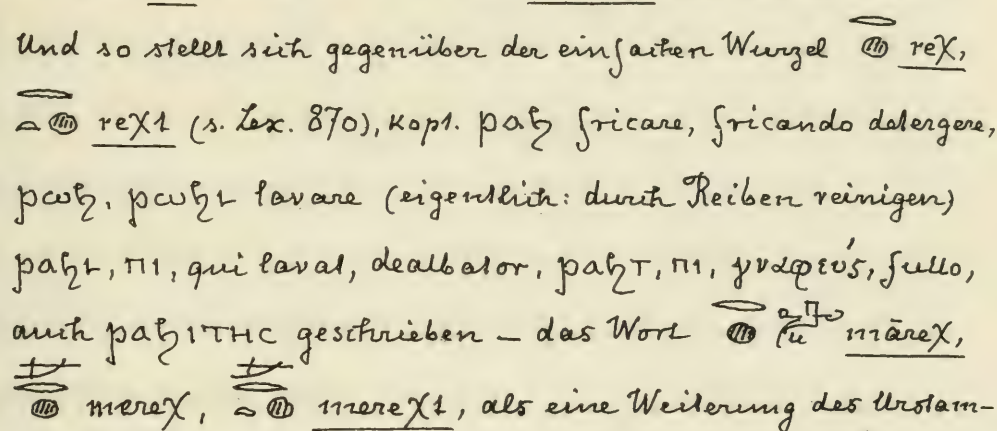 Und so stellt sich gegenüber der einfachen Wurzel 𓂋𓐍 reχ,
𓂋𓏏𓐍 reχt (s. Lex. 870), kopt. ⲣⲁϧ fricare, fricando detergere,
ⲣⲱϧ, ⲣⲱϧⲧ lavare (eigentlich: durch Reiben reinigen)
ⲣⲁϧⲧ, ⲡⲓ, qui lavat, dealbator, ⲣⲁϧⲧ, ⲡⲓ, γναφεύς, fullo,
auch ⲣⲁϧⲓⲧⲏⲥ geschrieben – das Wort māreχ,
mereχ, mereχt, als eine Weiterung des Urstam-